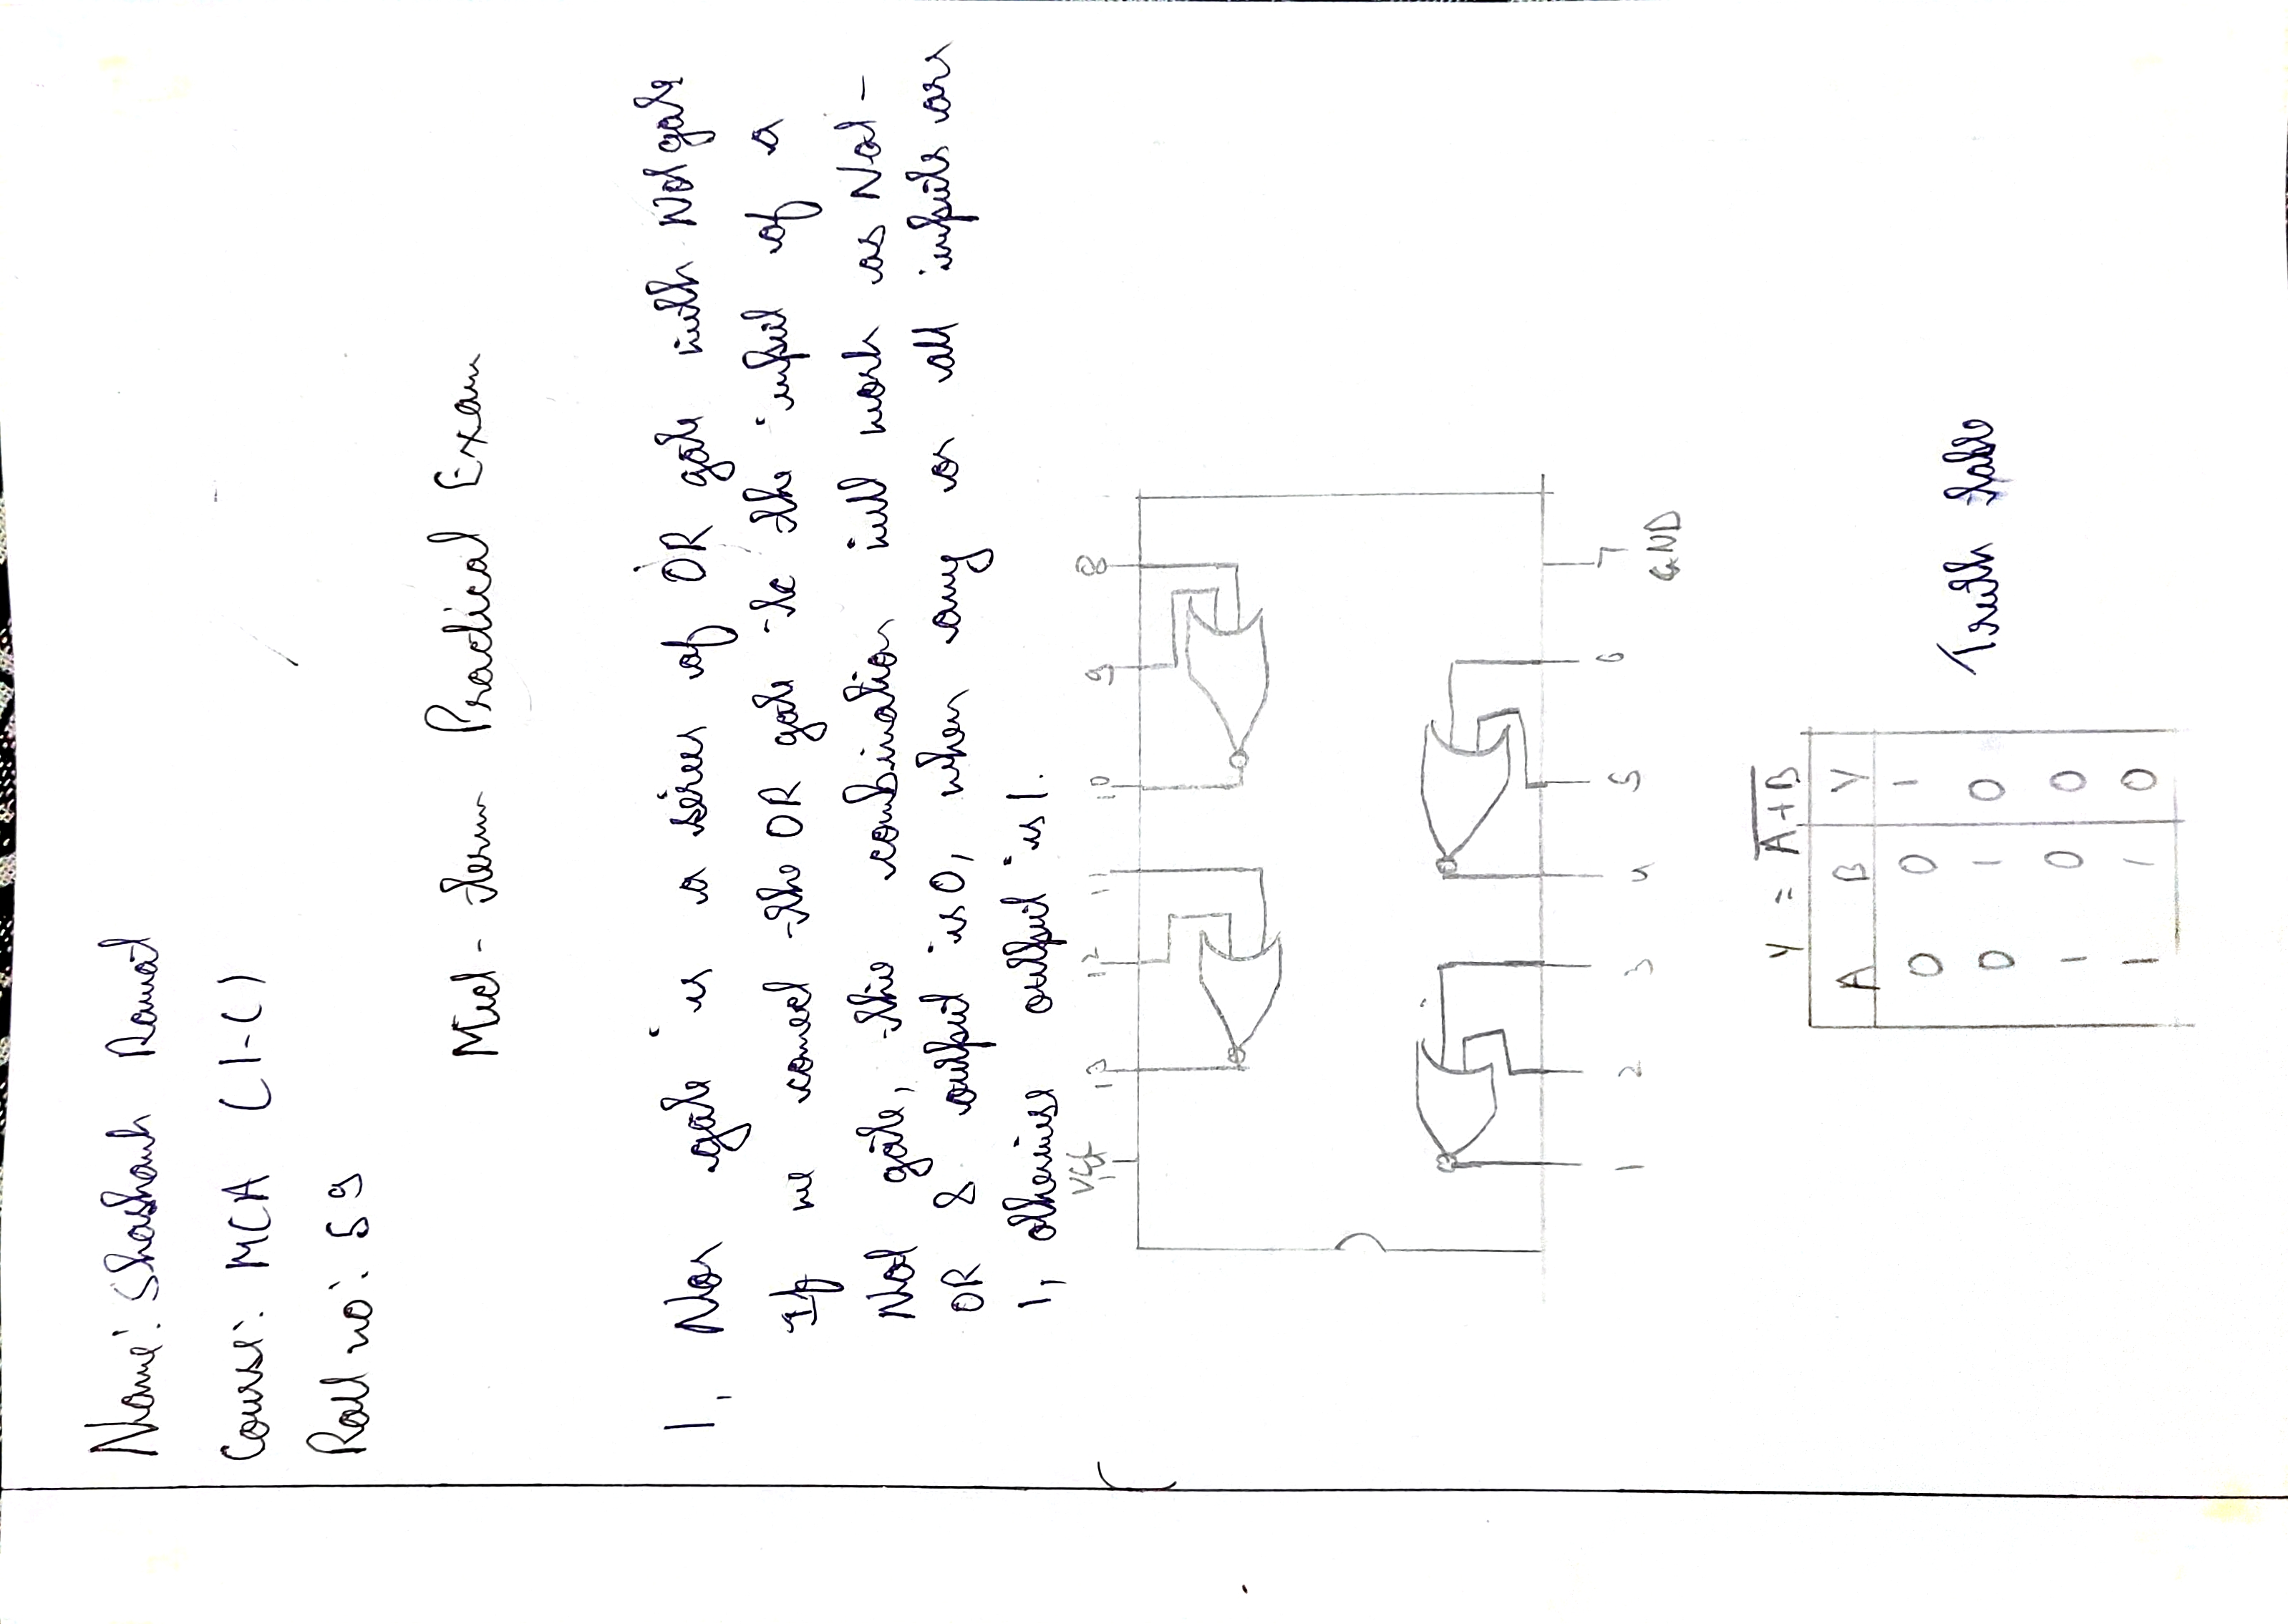 Name: Shashank Rawat
Course: MCA (1-C)
Roll no: 59
Mid-term Practical Exam
1, Nor gate is a series of OR gate with Not gate
If we connect the OR gate to the input of a
Not gate, this combination will work as Not-
OR & output is 0, when any or all inputs are
1, otherwise output is 1.
VCC
14 13 12 11 10 9 8
1 2 3 4 5 6 7
GND
Y = \overline{A+B}
A B Y
0 0 1
0 1 0
Truth table
1 0 0
1 1 0